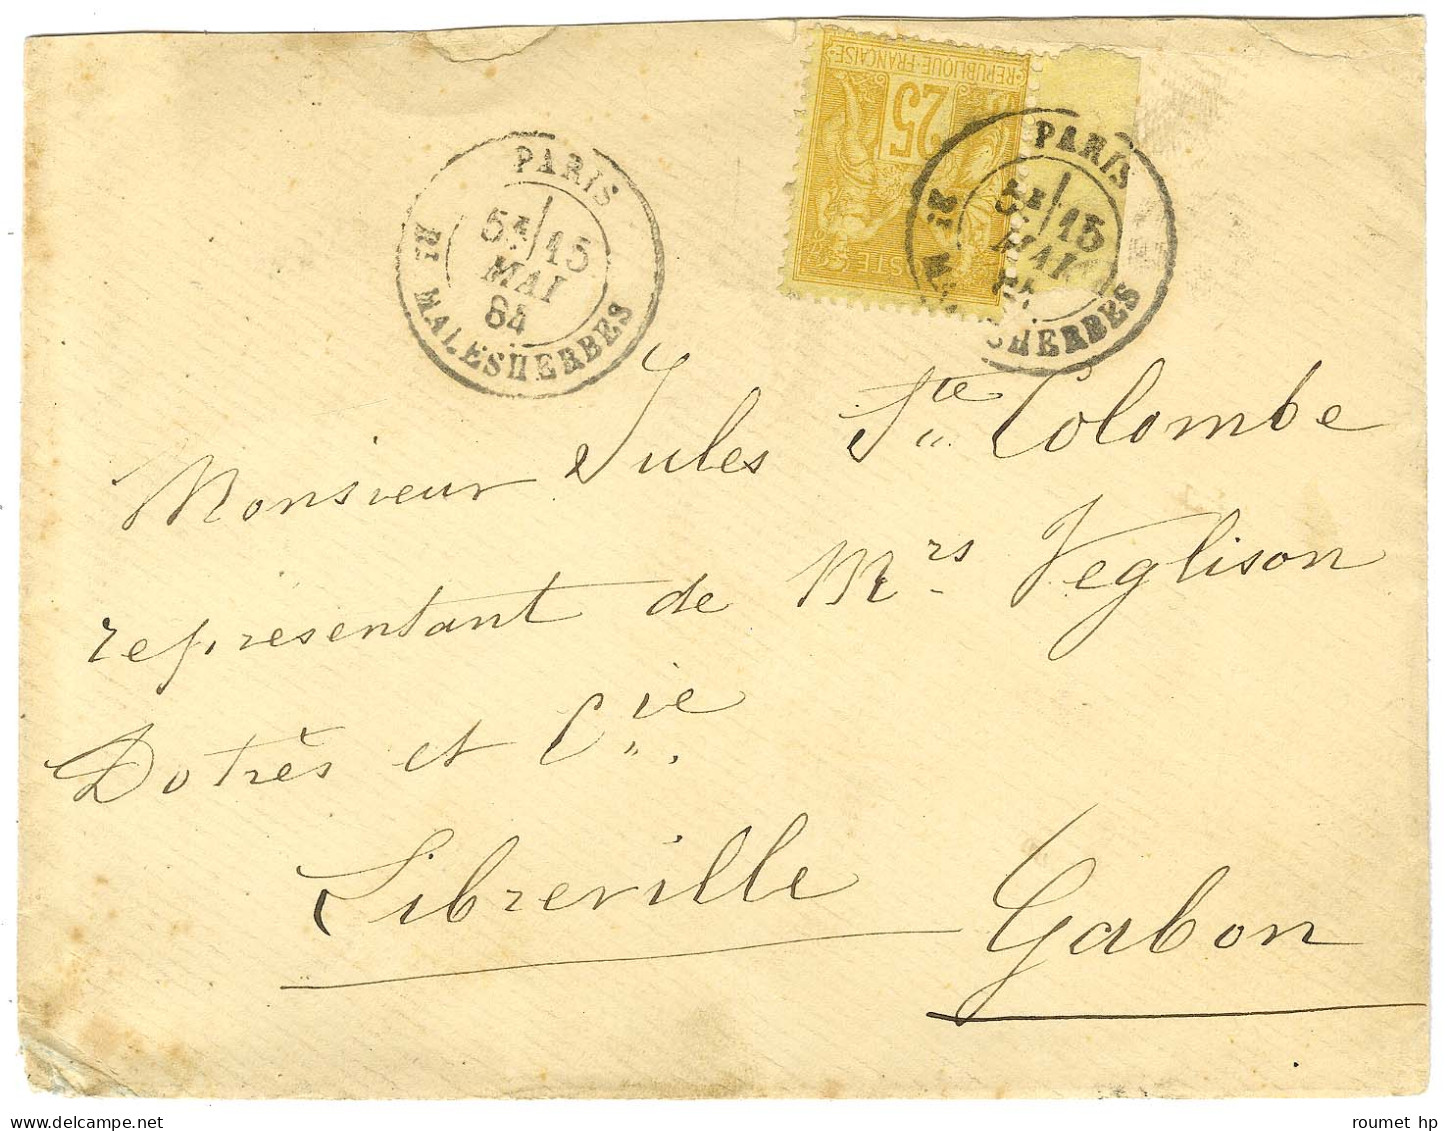 REPUBLIQUE·FRANÇAISE
25
POSTES
PARIS
5E 15
MAI
84
Bd MALESHERBES
PARIS
5E 15
MAI
84
SHERBES
Monsieur Jules Ste Colombe
représentant de Mrs Veglison
Dotrès et Cie.
Libreville
Gabon
roumet hp